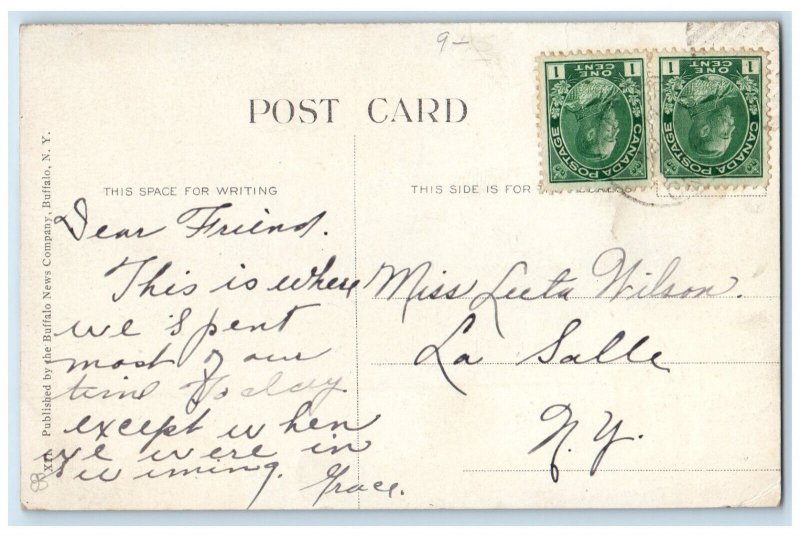 9-
POST CARD
ONE CENT
1 1
CANADA POSTAGE
ONE CENT
1 1
CANADA POSTAGE
THIS SPACE FOR WRITING
THIS SIDE IS FOR
Dear Friend.
This is where
we spent
most of our
time today
except when
we were in
swiming.
Grace.
Miss Leeta Wilson.
La Salle
N.Y.
Published by the Buffalo News Company, Buffalo, N. Y.